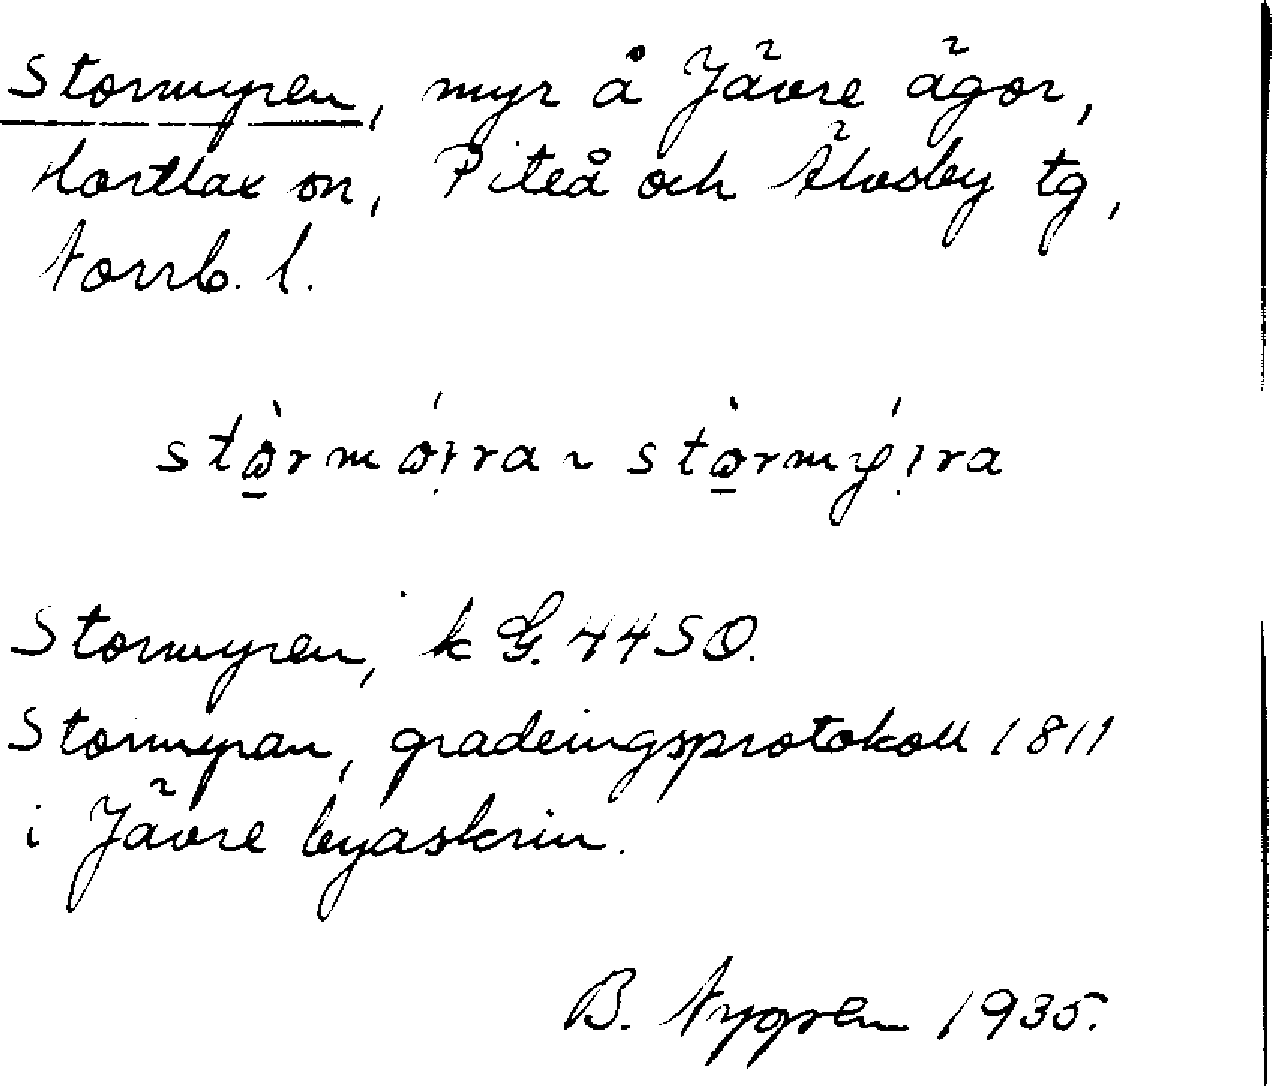 Stormyren, myr å Jävre ägor,
Hortlax sn, Piteå och Älvsby tg,
Norrb. l.
Stormyren, k G. 4450.
Stormyran, graderingsprotokoll 1811
i Jävre byaskrin.
B. Nygren 1935.